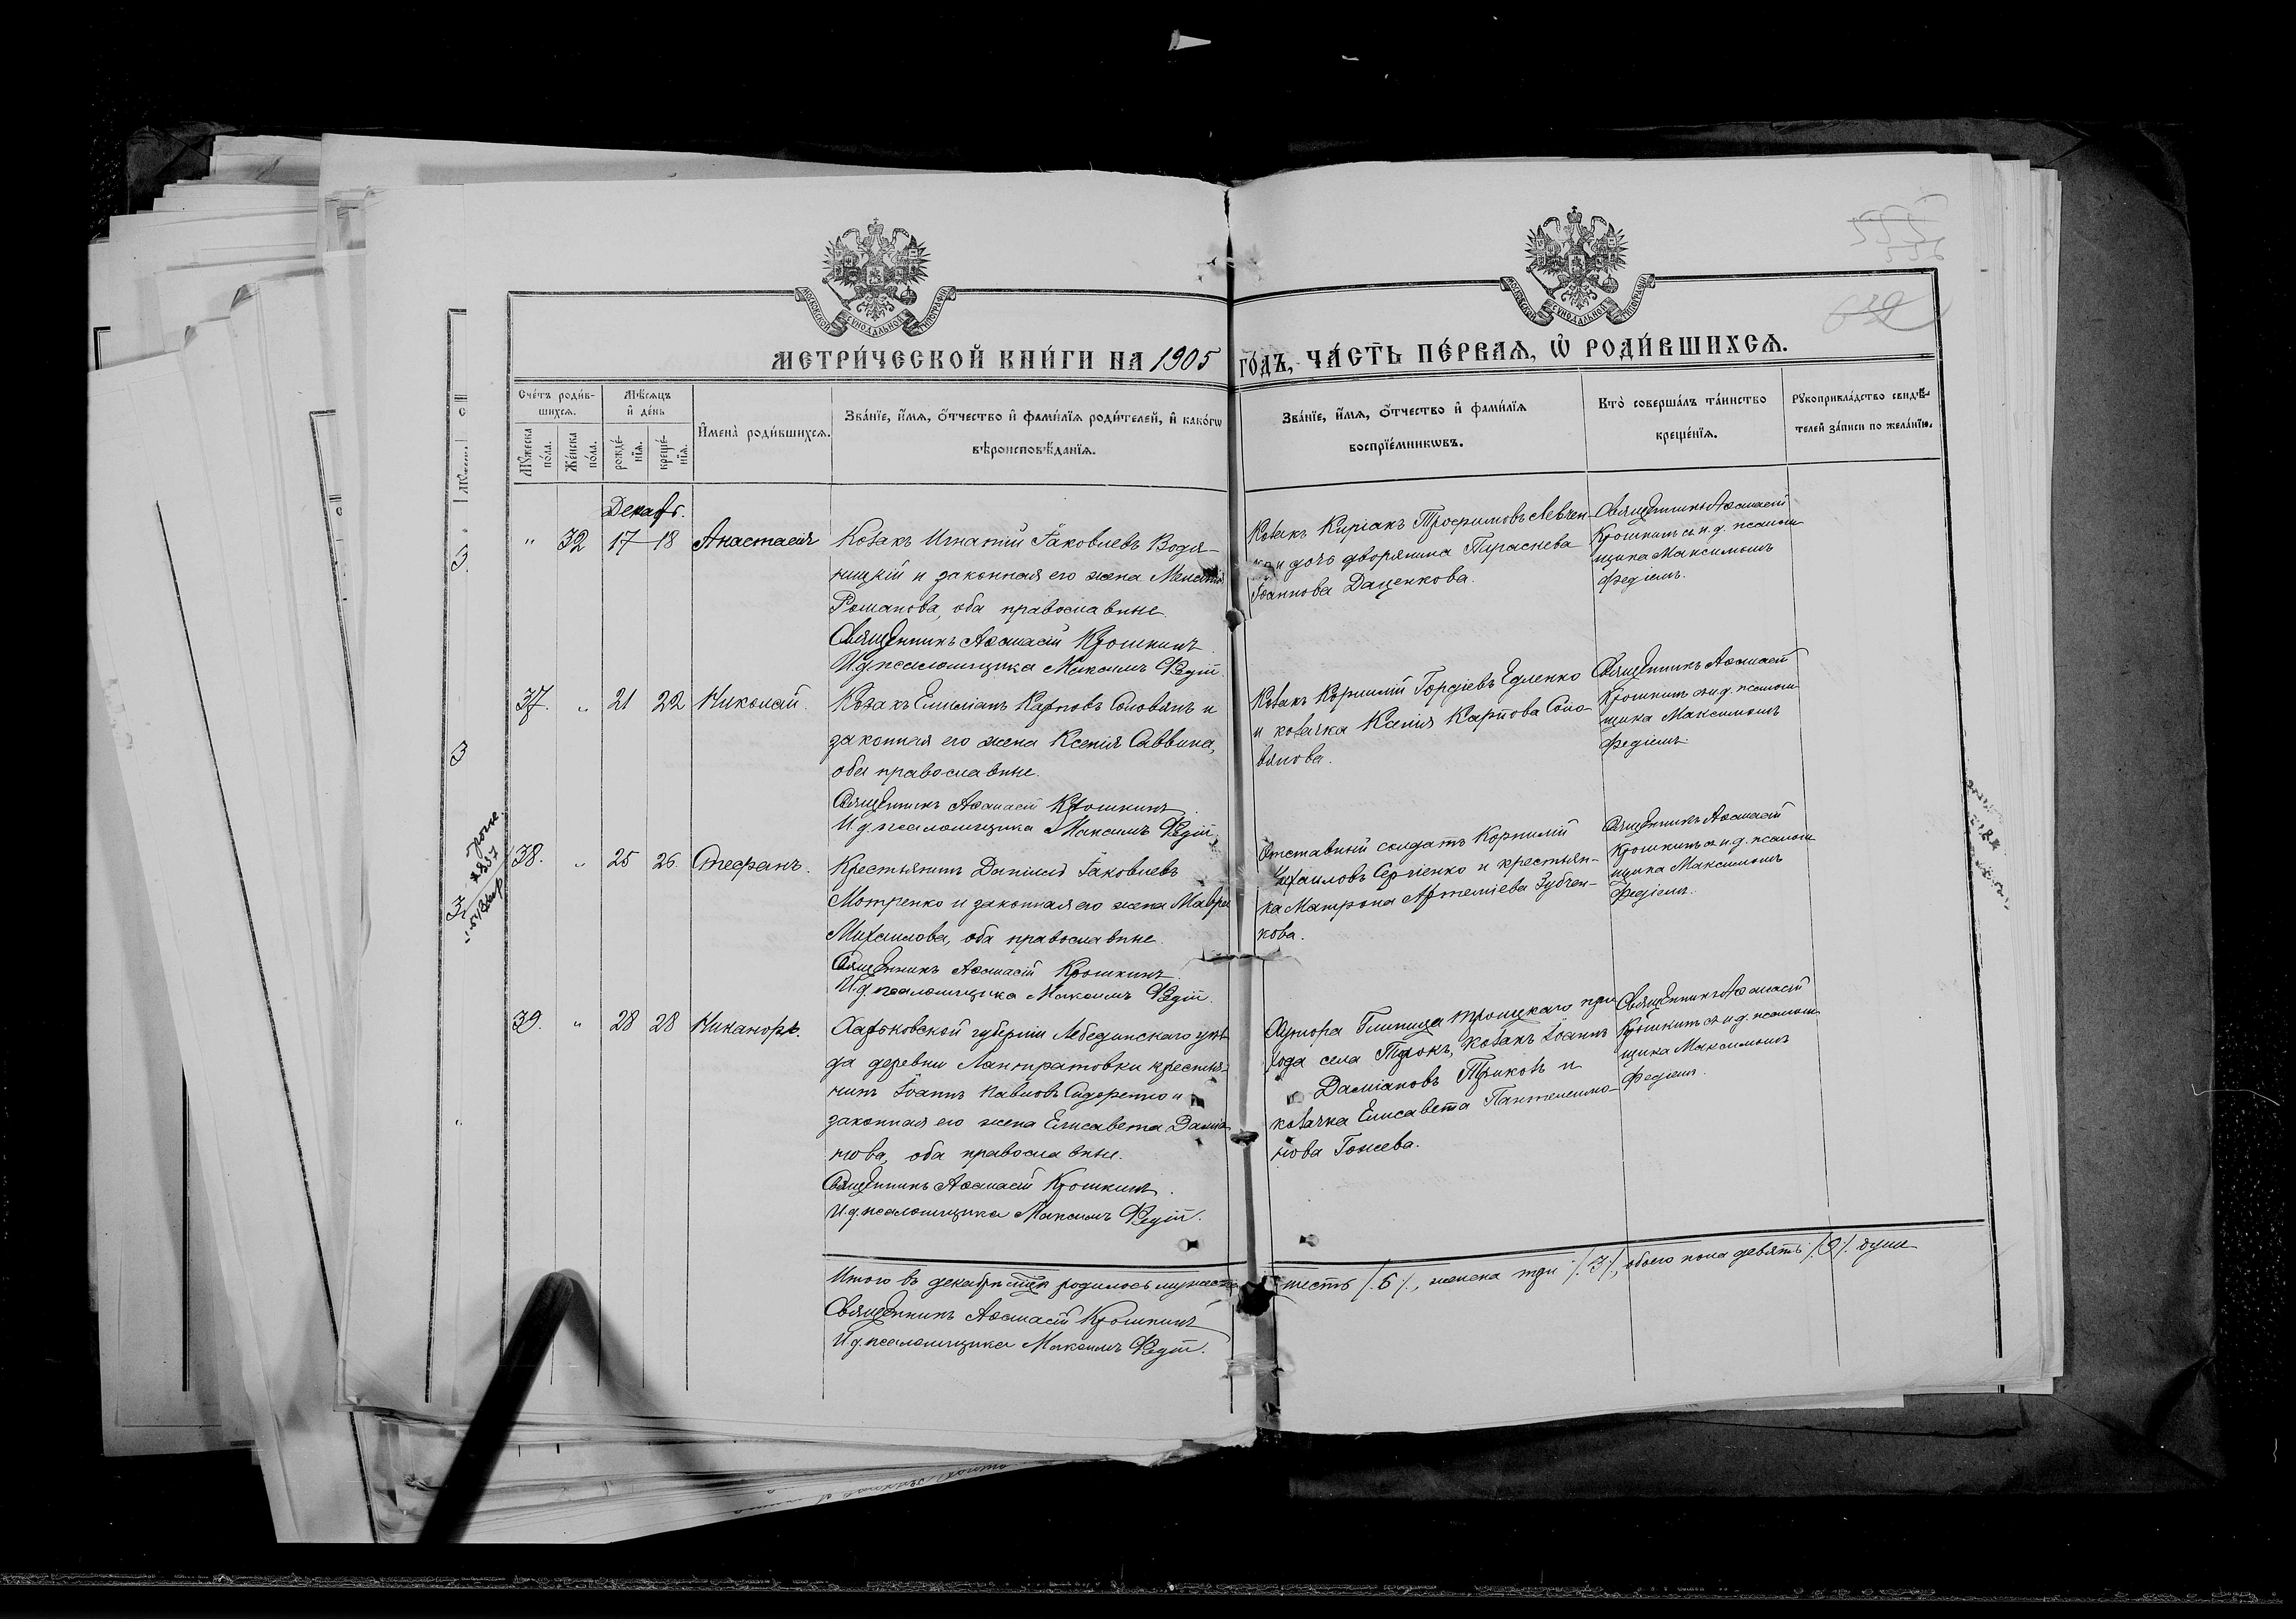 555
556
632
МОСКОВСКОЙ СѴНОДАЛЬНОЙ ТИПОГРАФІИ
МОСКОВСКОЙ СѴНОДАЛЬНОЙ ТИПОГРАФІИ
МЕТРИ́ЧЕСКОЙ КНИ́ГИ НА 1905 ГО́ДЪ, ЧА́СТЬ ПЕ́РВАЯ, Ѡ РОДИ́ВШИХСЯ.
Сче́тъ роди́в-
шихся.
Мѣ́сяцъ
и҆ де́нь
Мꙋ́жеска по́ла.
Же́нска по́ла.
рожде́-
нїѧ.
креще́-
нїѧ.
И҆мена̀ роди́вшихсѧ.
Зва́нїе, и҆́мѧ, ѻ҆́тчество и҆ фами́лїѧ роди́телей, и҆ како́гѡ
вѣроисповѣ́данїѧ.
Зва́нїе, и҆́мѧ, ѻ҆́тчество и҆ фами́лїѧ
воспрїе́мникѡвъ.
Кто̀ соверша́лъ та́инство
креще́нїѧ.
Рꙋкоприкла́дство свидѣ́-
телей за́писи по жела́нїю.
Декабр.
" 32 17 18 Анастасія
Козакъ Игнатій Іаковлевъ Водя-
ницкій и законная его жена
Романова, оба православные
Священникъ Аѳанасій Крошкинъ
И.д. псаломщика Максимъ Федій.
Козакъ Киріакъ Трофимовъ Левчен-
ко и дочь дворянина Параскева
Іоаннова Даценкова.
Священникъ Аѳанасій
Крошкинъ съ и.д. псалом-
щика Максимомъ
Федіемъ.
37. " 21 22 Николай.
Козакъ Емиліанъ Карповъ Соловянъ и
законная его жена Ксенія Саввина,
оба православные.
Священникъ Аѳанасій Крошкинъ
И.д. псаломщика Максимъ Федій.
Козакъ Корнилій Гордіевъ Едленко
и козачка Ксенія Карпова Соло-
вянова.
Священникъ Аѳанасій
Крошкинъ съ и.д. псалом-
щика Максимомъ
Федіемъ.
38. " 25 26. Стефанъ.
Крестьянинъ Даніилъ Іаковлевъ
Мотренко и законная его жена Мавра
Михаилова, оба православные
Священникъ Аѳанасій Крошкинъ
И.д. псаломщика Максимъ Федій.
Отставный солдатъ Корнилій
Михаиловъ Сергіенко и крестьян-
ка Матрона Артеміева Зубчен-
кова.
Священникъ Аѳанасій
Крошкинъ съ и.д. псалом-
щика Максимомъ
Федіемъ.
39. " 28 28 Никаноръ.
Харьковской губерніи Лебединскаго уѣз-
да деревни Лантратовки крестья-
нинъ Іоаннъ Павловъ Сидоренко и
законная его жена Елисавета Даміа-
нова, оба православные.
Священникъ Аѳанасій Крошкинъ
И.д. псаломщика Максимъ Федій.
Хутора Глиница Троицкаго при-
хода села Трокъ, козакъ Іоаннъ
Даміановъ и
козачка Елисавета Пантелеимо-
нова Гонжева.
Священникъ Аѳанасій
Крошкинъ съ и.д. псалом-
щика Максимомъ
Федіемъ.
Итого въ декабрѣ мцѣ родилось мужеска шесть /.6./, женска три /.3./, обоего пола девять /.9./. душъ
Священникъ Аѳанасій Крошкинъ
И.д. псаломщика Максимъ Федій.